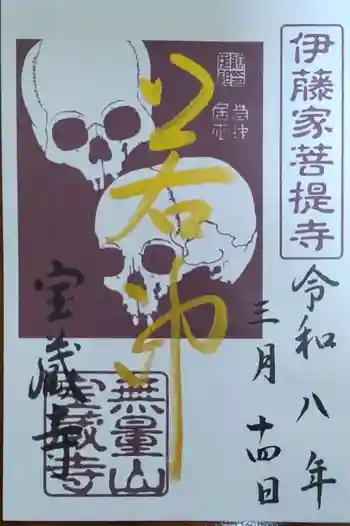 伊藤家菩提寺
令和八年
三月十四日
若冲
居士
若冲
宝蔵寺
無量山
宝蔵寺